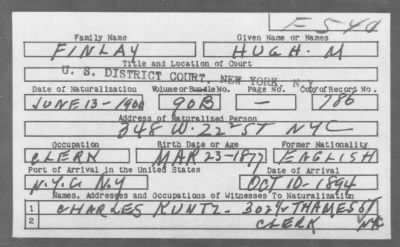 F 544
Family Name Given Name or Names
FINLAY HUGH. M
Title and Location of Court
U. S. DISTRICT COURT, NEW YORK, N.Y.
Date of Naturalization Volume or Bundle No. Page No. Copy of Record No.
JUNE 13-1900 90B — 786
Address of Naturalized Person
348 W. 22 ST NYC
Occupation Birth Date or Age Former Nationality
CLERK MAR 23-1877 ENGLISH
Port of Arrival in the United States Date of Arrival
N.Y.C N.Y OCT 10-1894
Names, Addresses and Occupations of Witnesses To Naturalization
1 CHARLES KUNTZ- THAMES ST
2 CLERK NYC